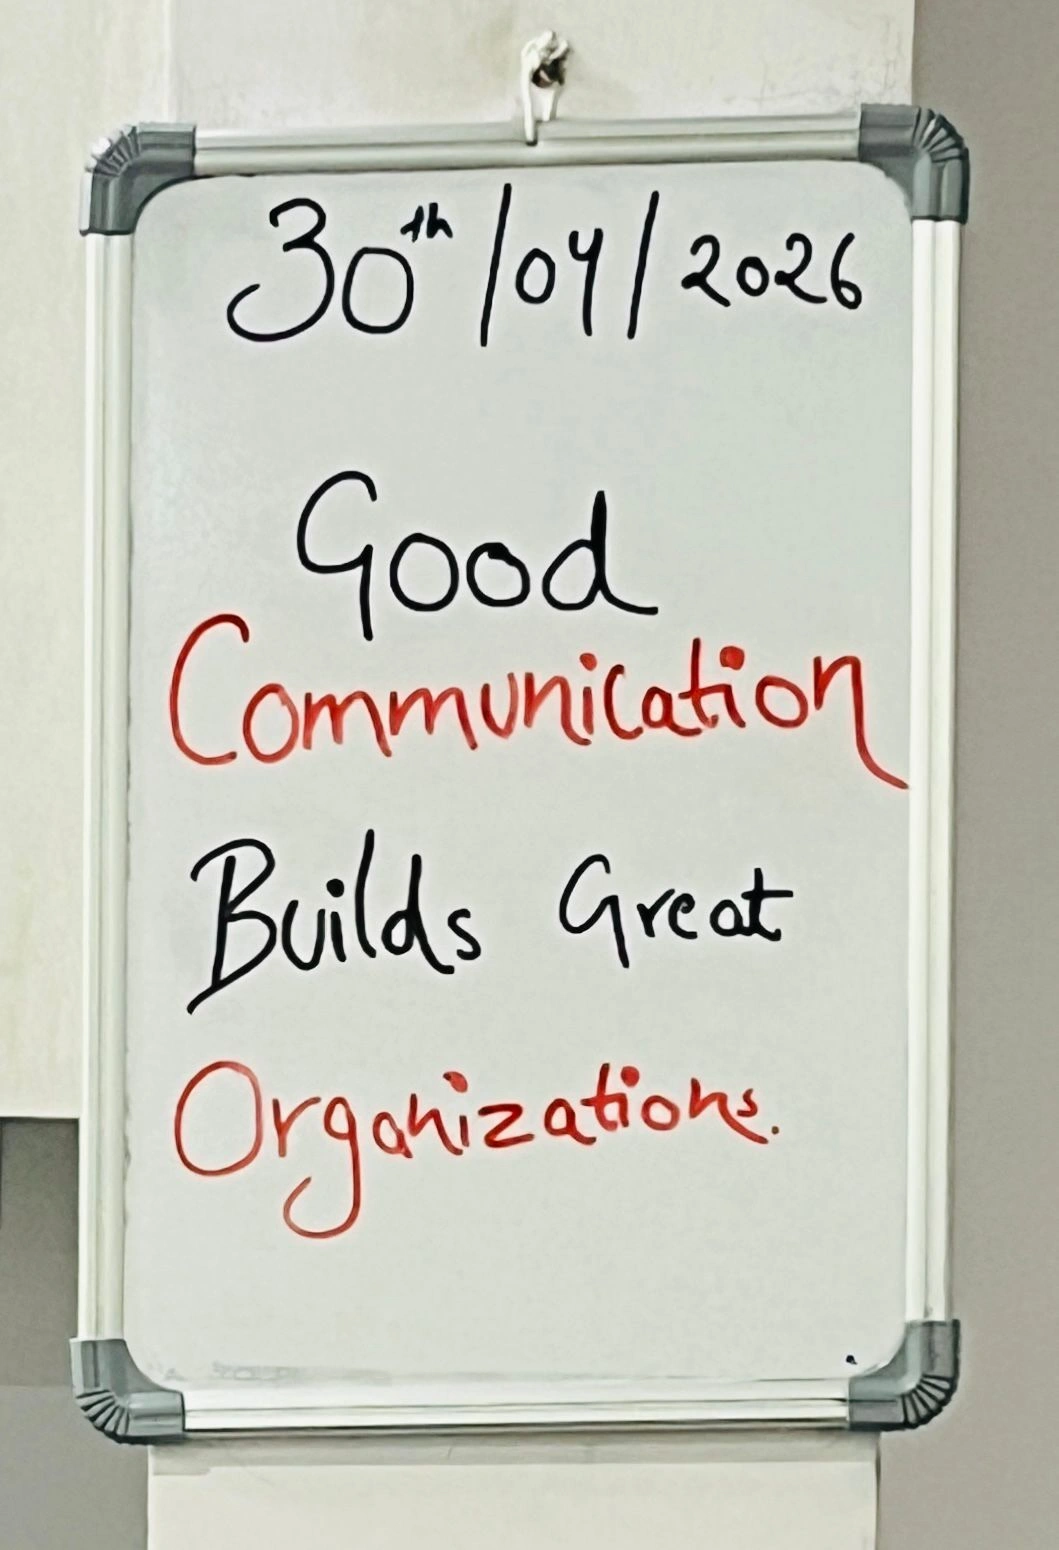 30th/04/2026
Good
Communication
Builds Great
Organizations.